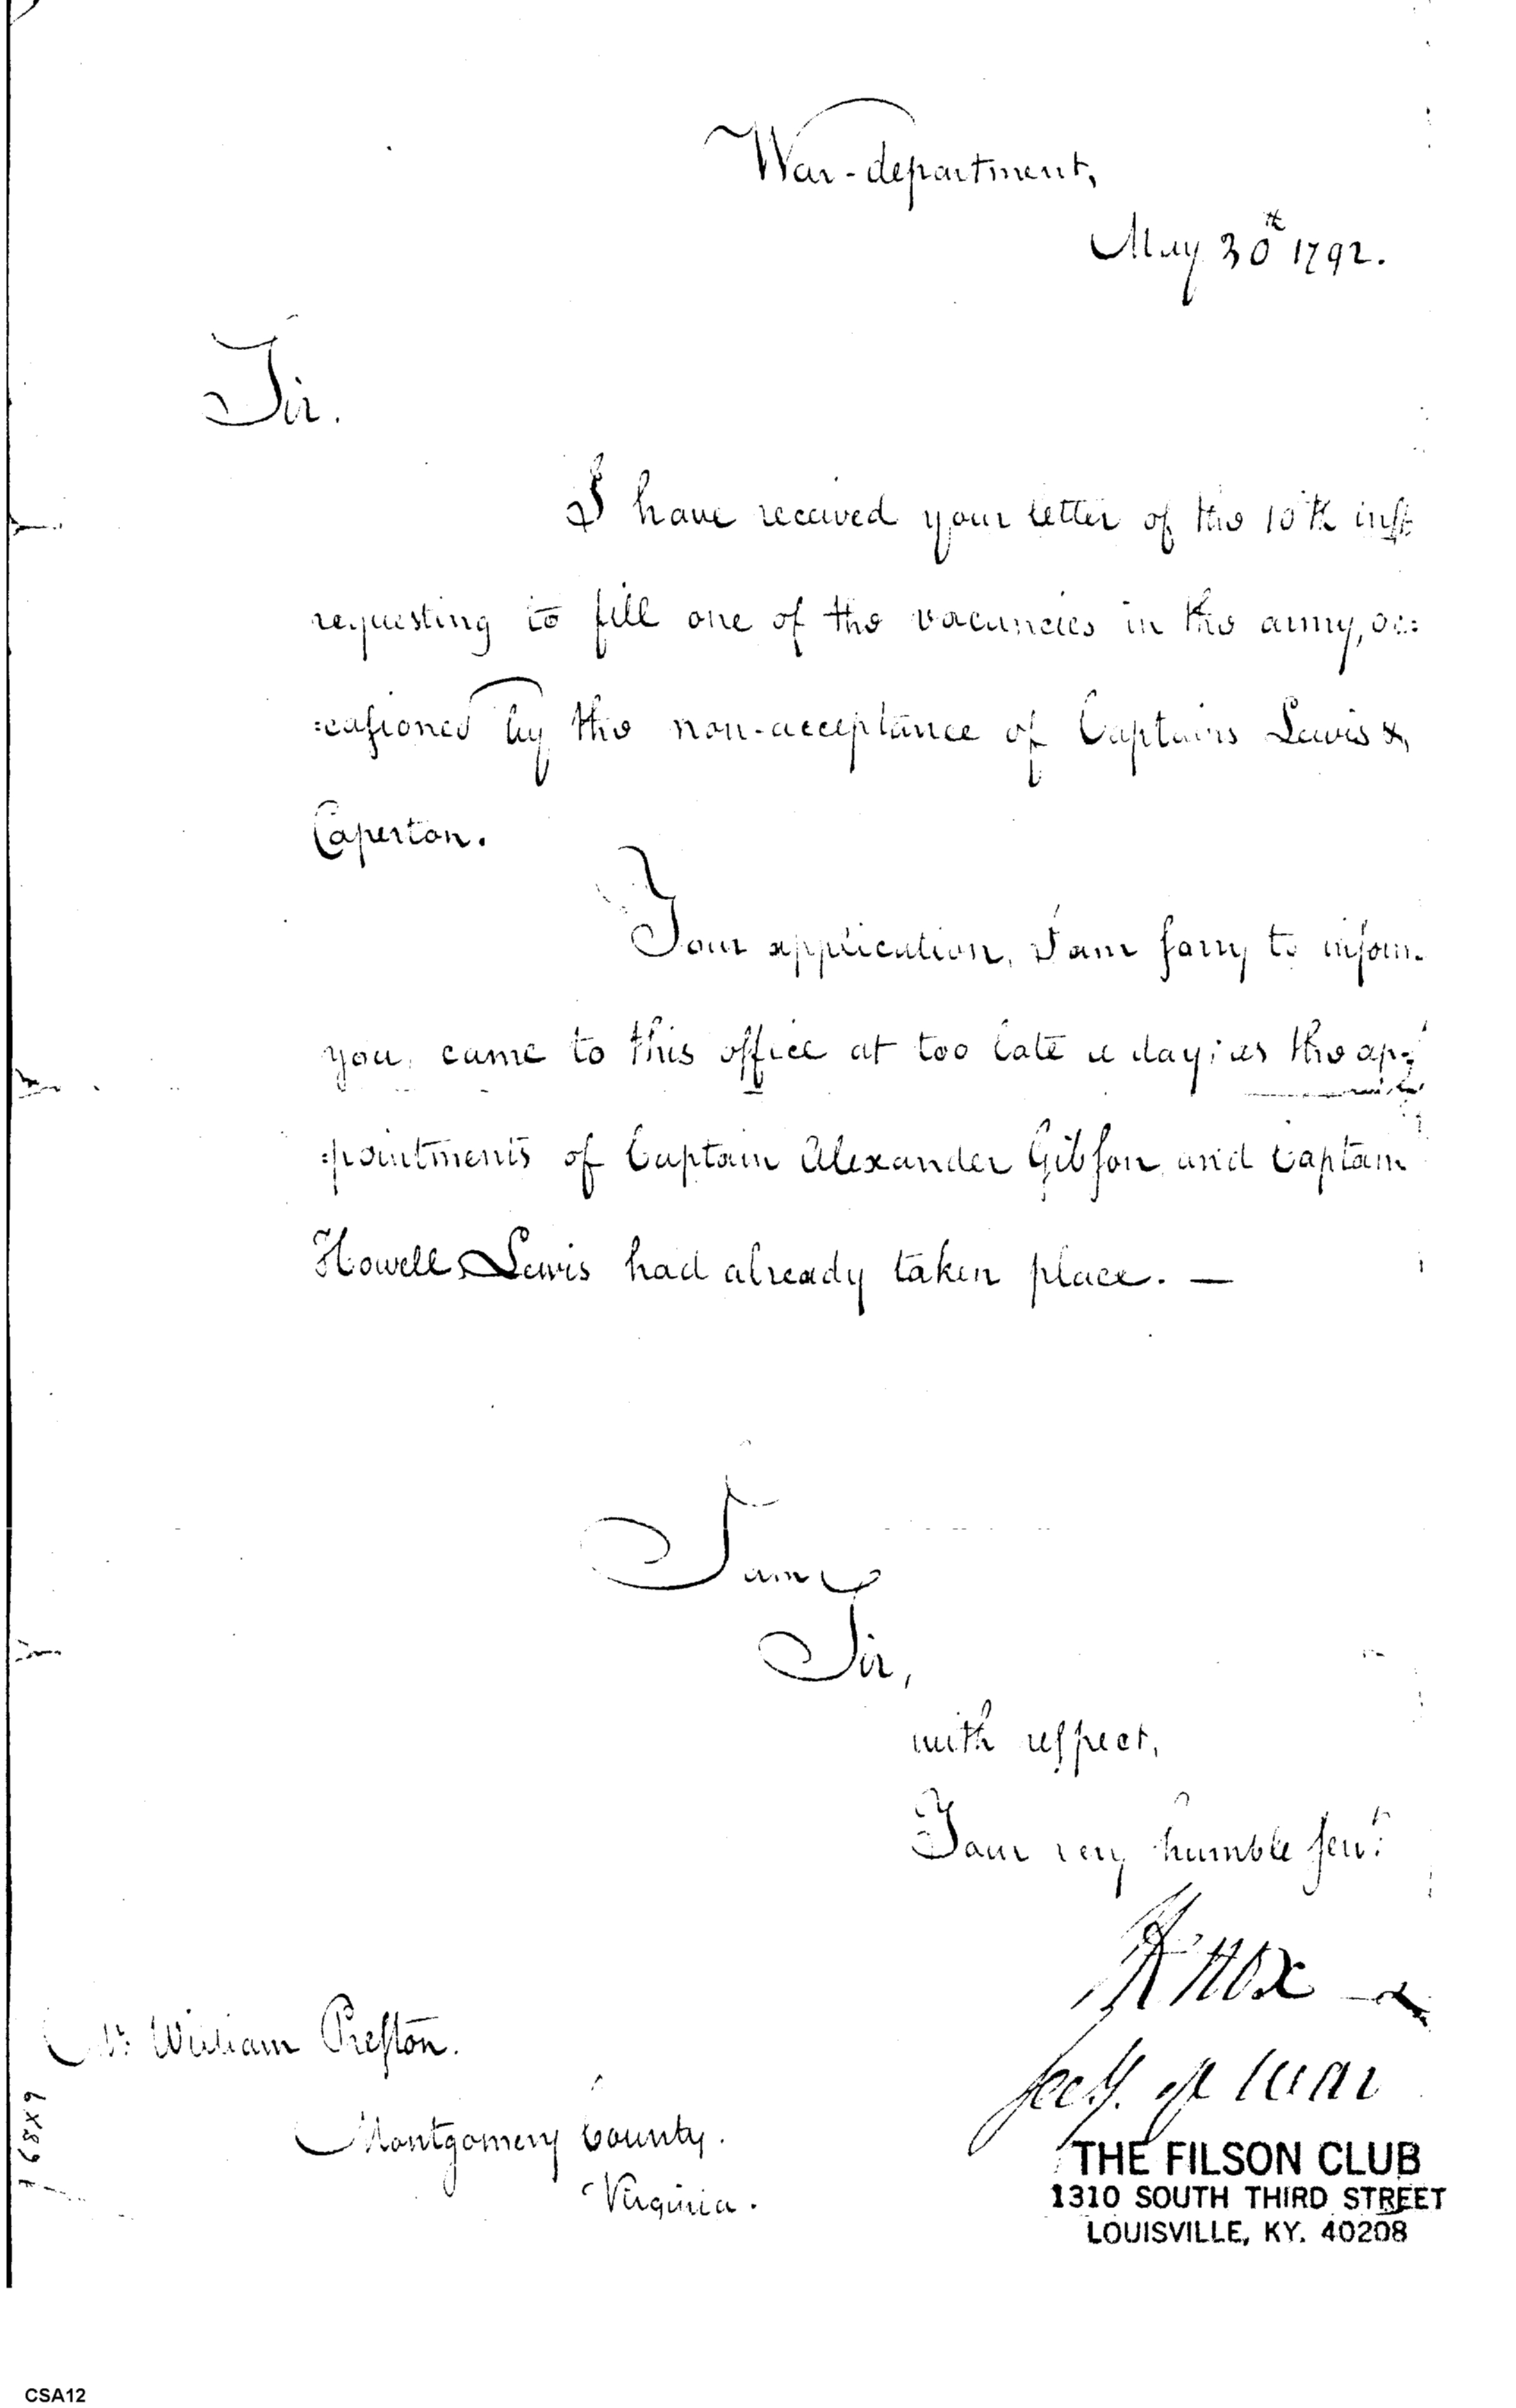 War-department,
May 30th 1792.
Sir.
I have received your letter of the 10th inst
requesting to fill one of the vacancies in the army, oc:
:casioned by the non-acceptance of Captains Lewis &
Caperton.
Your application, I am sorry to inform
you, came to this office at too late a day; as the ap:
:pointments of Captain Alexander Gibson and Captain
Howell Lewis had already taken place. —
I am
Sir,
with respect,
Your very humble servt.
H Knox
Secy. of War
Mr. William Preston.
Montgomery County.
Virginia.
THE FILSON CLUB
1310 SOUTH THIRD STREET
LOUISVILLE, KY. 40208
CSA12